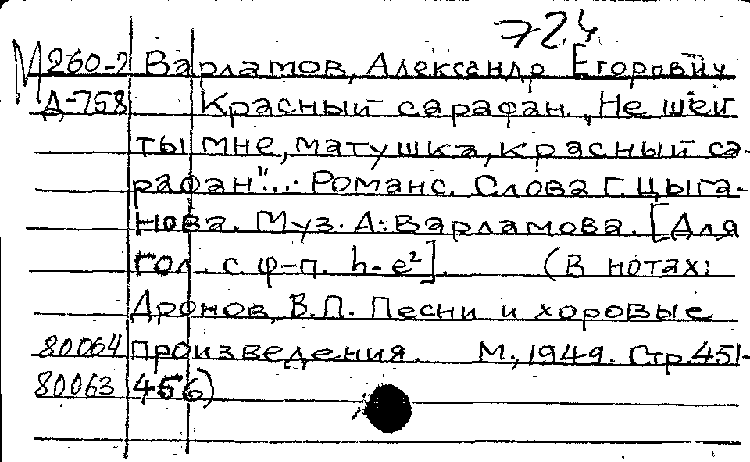 724
М 260-2 Варламов, Александр Егорович
Д-758 Красный сарафан. „Не шей
ты мне, матушка, красный са-
рафан"... Романс. Слова Г. Цыга-
нова. Муз. А. Варламова. [Для
гол. с ф-п. h-e²]. (В нотах:
Дронов, В.П. Песни и хоровые
80064 произведения. М., 1949. Стр. 451-
80063 456)